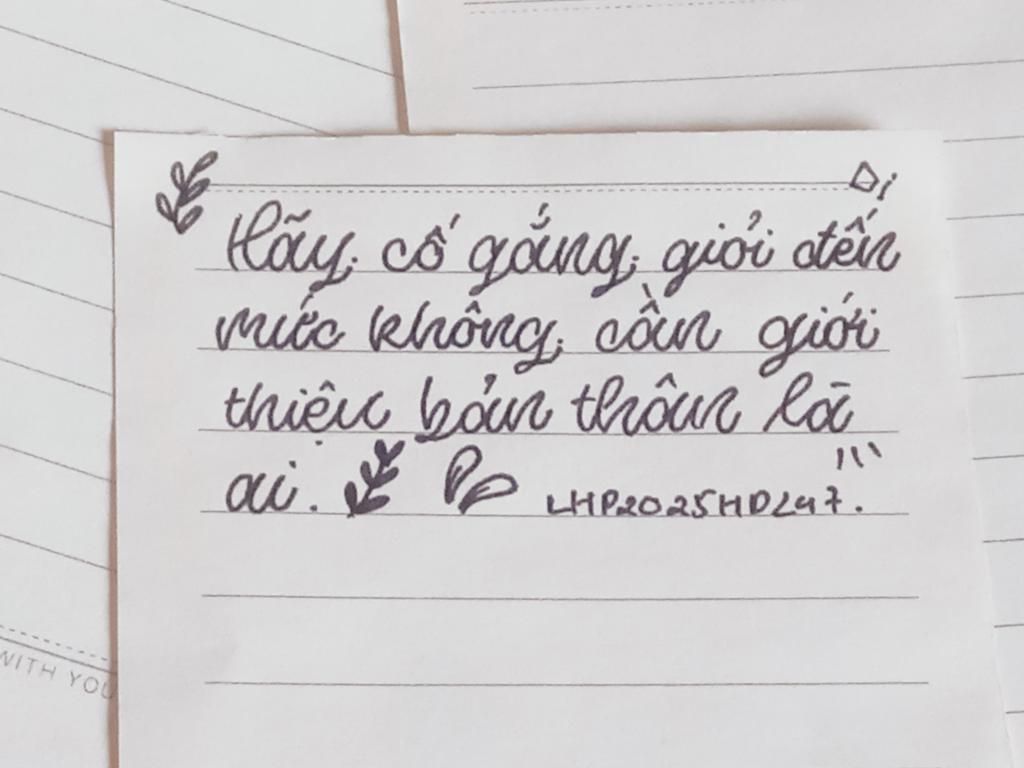 Hãy cố gắng giỏi đến
mức không cần giới
thiệu bản thân là
ai. LHP2025HDL47.
WITH YOU